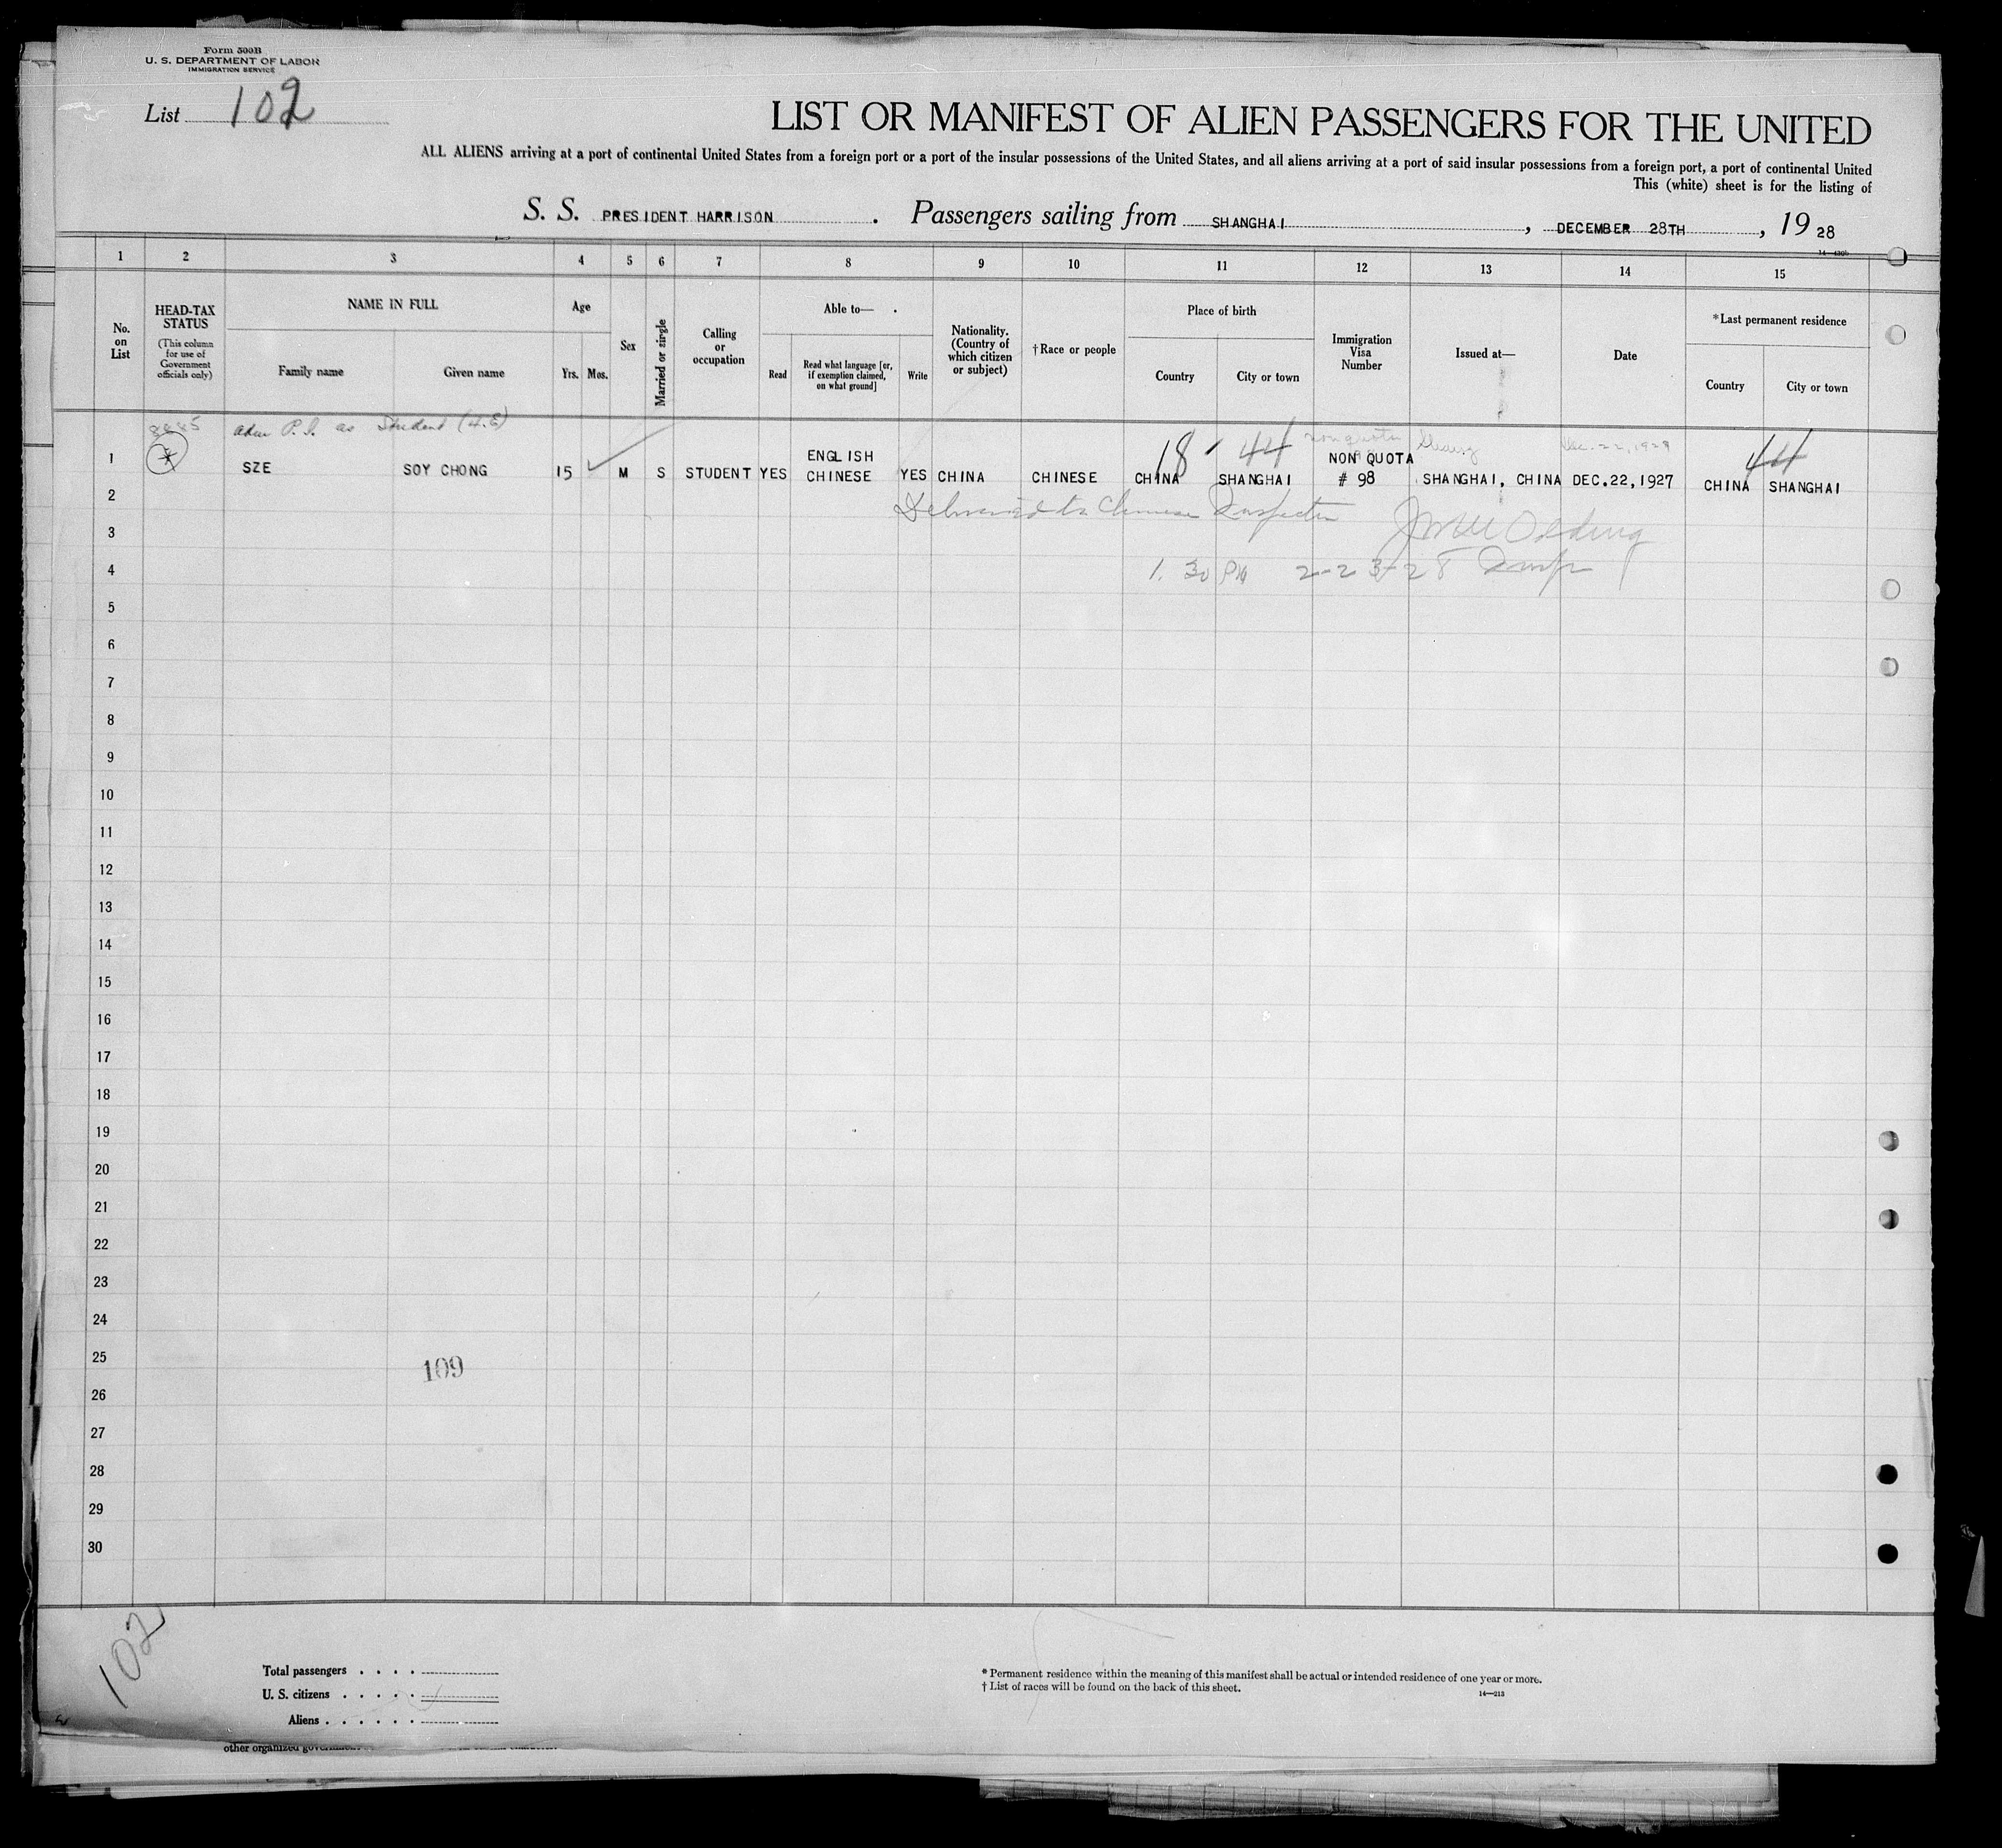 Form 500B
U. S. DEPARTMENT OF LABOR
IMMIGRATION SERVICE
List 102
LIST OR MANIFEST OF ALIEN PASSENGERS FOR THE UNITED
ALL ALIENS arriving at a port of continental United States from a foreign port or a port of the insular possessions of the United States, and all aliens arriving at a port of said insular possessions from a foreign port, a port of continental United
This (white) sheet is for the listing of
S. S. PRESIDENT HARRISON. Passengers sailing from SHANGHAI, DECEMBER 28TH, 19 28
1 2 3 4 5 6 7 8 9 10 11 12 13 14 15
No. on List
HEAD-TAX STATUS
(This column for use of Government officials only)
NAME IN FULL
Family name Given name
Age
Yrs. Mos.
Sex
Married or single
Calling or occupation
Able to—
Read
Read what language [or, if exemption claimed, on what ground]
Write
Nationality. (Country of which citizen or subject)
†Race or people
Place of birth
Country City or town
Immigration Visa Number
Issued at—
Date
*Last permanent residence
Country City or town
adm P.I. as Student (4.E)
18 44 non quota Dec. 22, 1928 44
ENGLISH NON QUOTA
1 SZE SOY CHONG 15 M S STUDENT YES CHINESE YES CHINA CHINESE CHINA SHANGHAI # 98 SHANGHAI, CHINA DEC.22,1927 CHINA SHANGHAI
2 Delivered to Chinese Inspector
3
4 1. 30 PM 2-23-28 Insp
5
6
7
8
9
10
11
12
13
14
15
16
17
18
19
20
21
22
23
24
25
109
26
27
28
29
30
102
Total passengers . . . .
U. S. citizens . . . . .
Aliens . . . . . .
* Permanent residence within the meaning of this manifest shall be actual or intended residence of one year or more.
† List of races will be found on the back of this sheet.
14—213
other organized